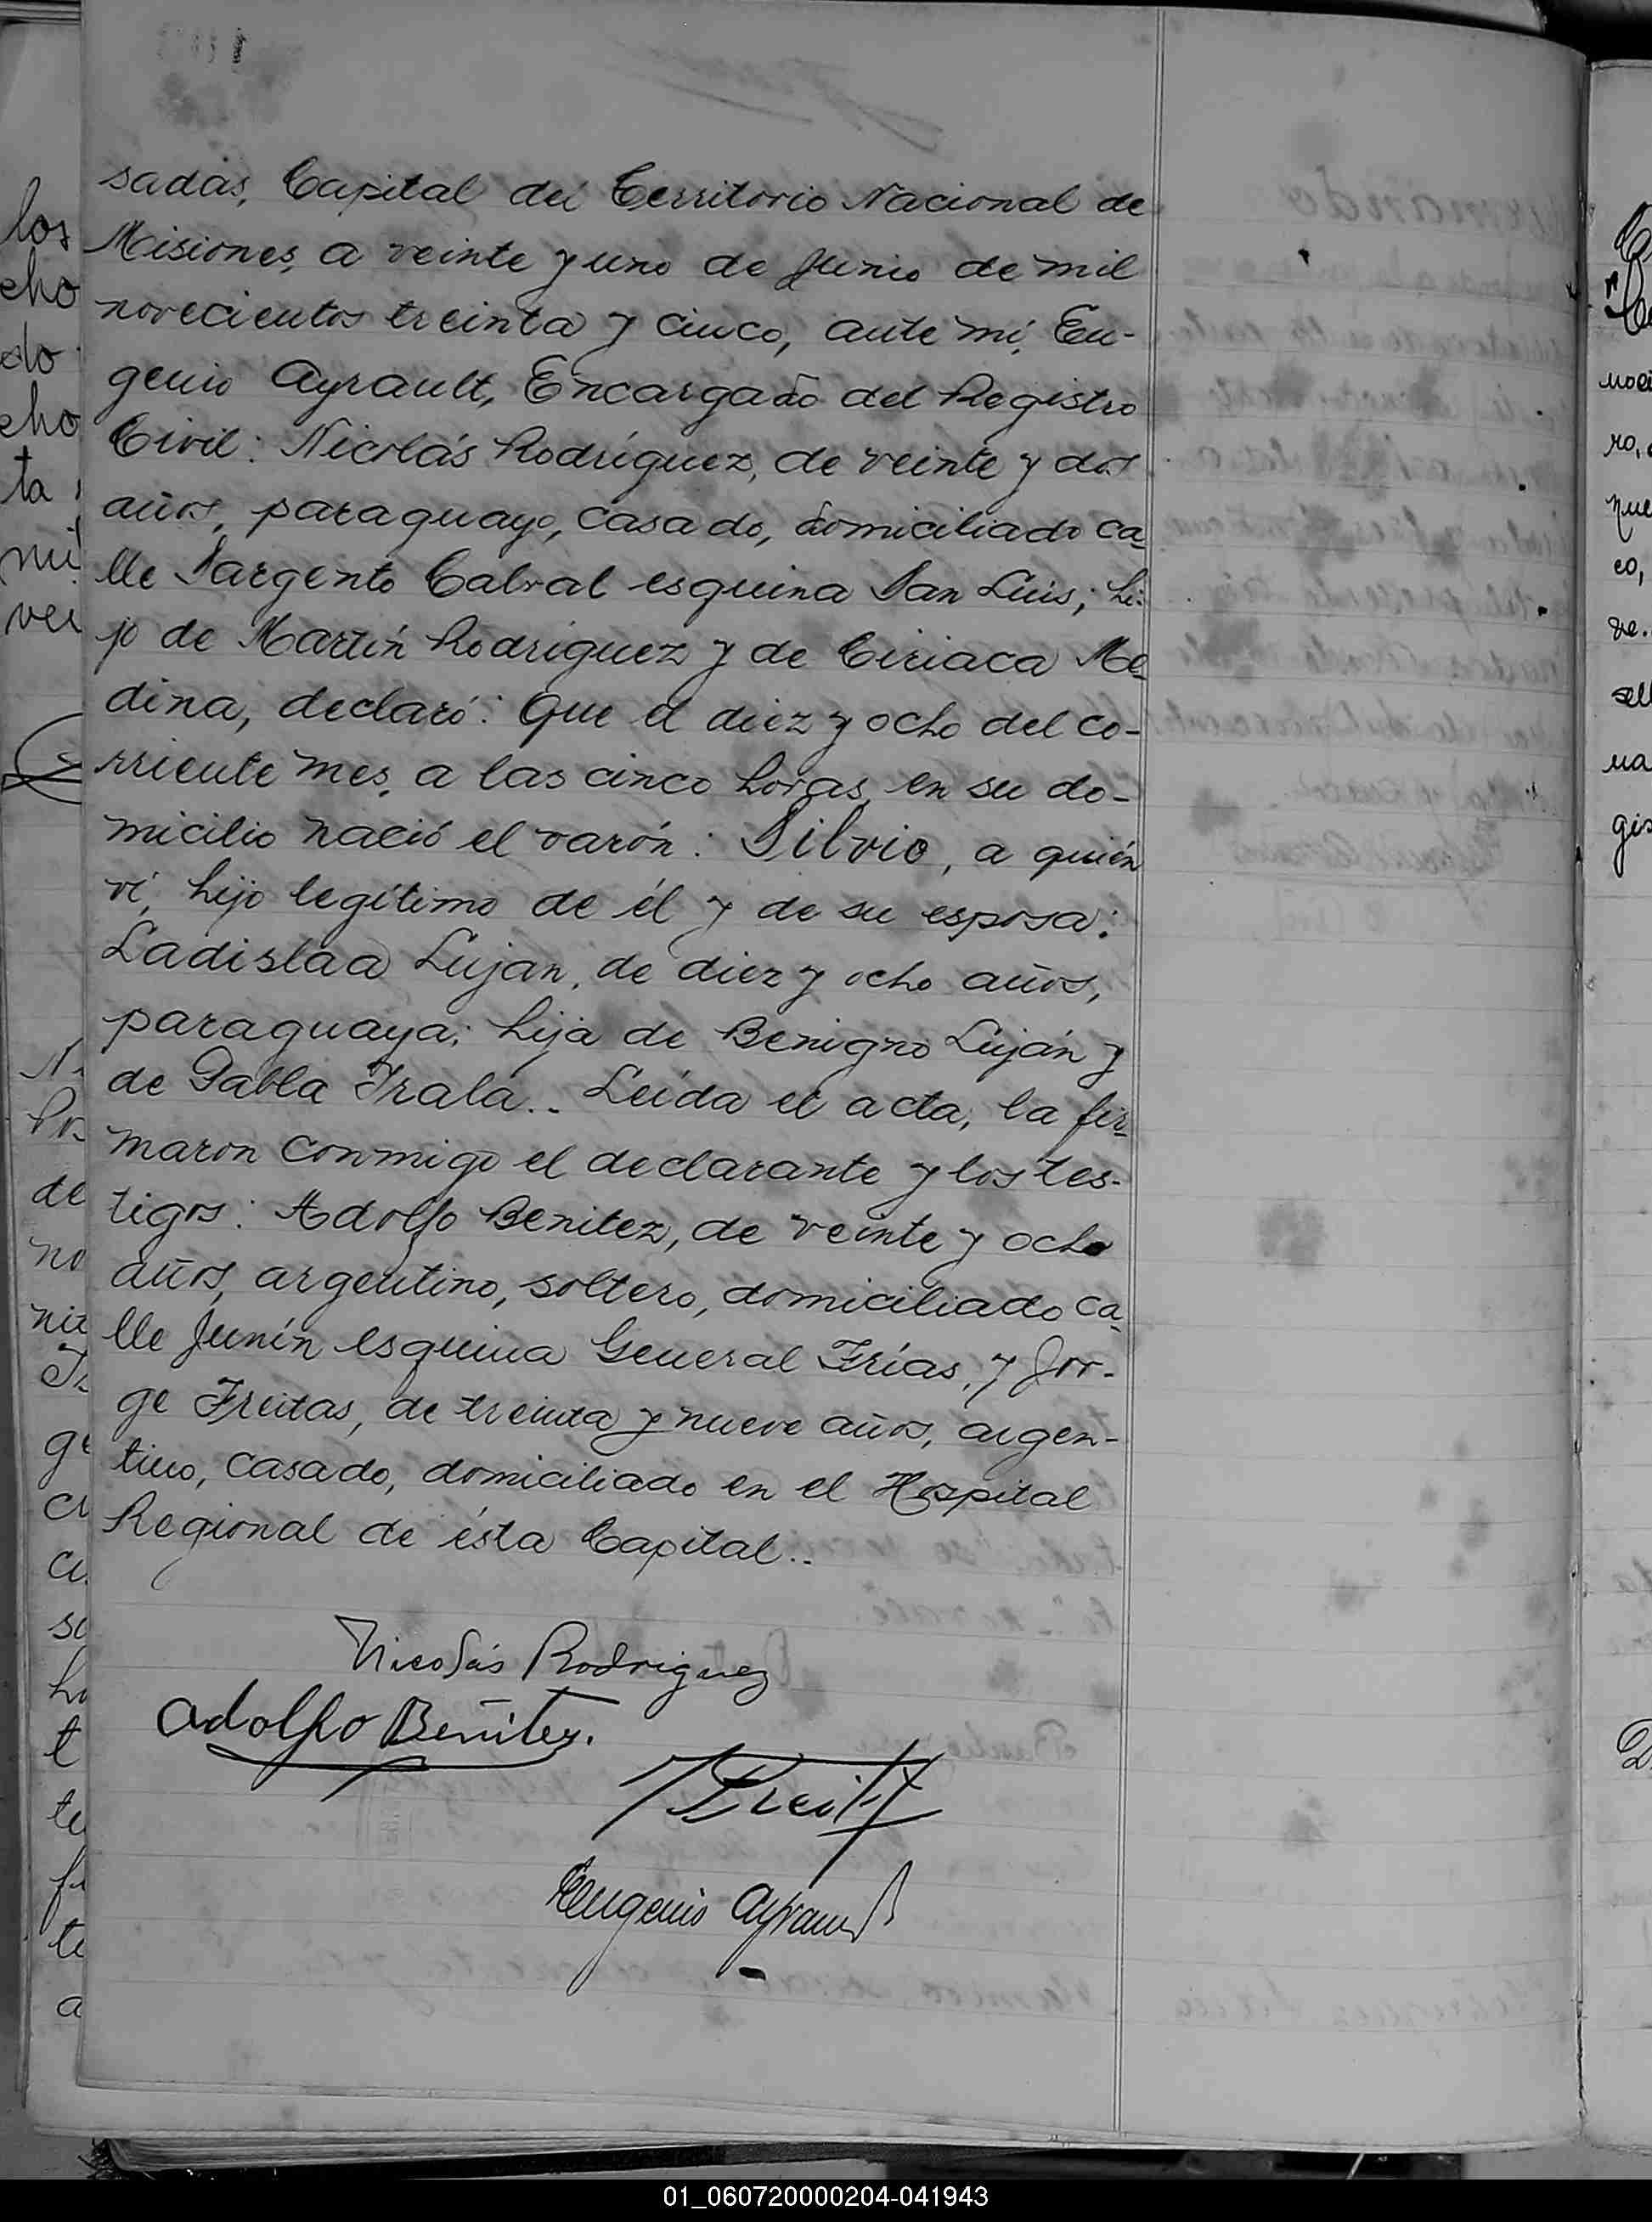 sadas, Capital del Territorio Nacional de
Misiones, a veinte y uno de Junio de mil
novecientos treinta y cinco, ante mí, Eu-
genio Ayrault, Encargado del Registro
Civil: Nicolás Rodríguez, de veinte y dos
años, paraguayo, casado, domiciliado ca-
lle Sargento Cabral esquina San Luis; hi-
jo de Martín Rodríguez y de Ciriaca Me-
dina, declaró: Que el diez y ocho del co-
rriente mes, a las cinco horas, en su do-
micilio nació el varón: Silvio, a quién
ví, hijo legítimo de él y de su esposa:
Ladislaa Luján, de diez y ocho años,
paraguaya; hija de Benigno Luján y
de Pabla Irala.. Leída el acta, la fir-
maron conmigo el declarante y los tes-
tigos: Adolfo Benitez, de veinte y ocho
años, argentino, soltero, domiciliado ca-
lle Junín esquina General Frías, y Jor-
ge Freitas, de treinta y nueve años, argen-
tino, casado, domiciliado en el Hospital
Regional de ésta Capital..
Nicolás Rodriguez
Adolfo Benitez.
Eugenio Ayrault
01_060720000204-041943